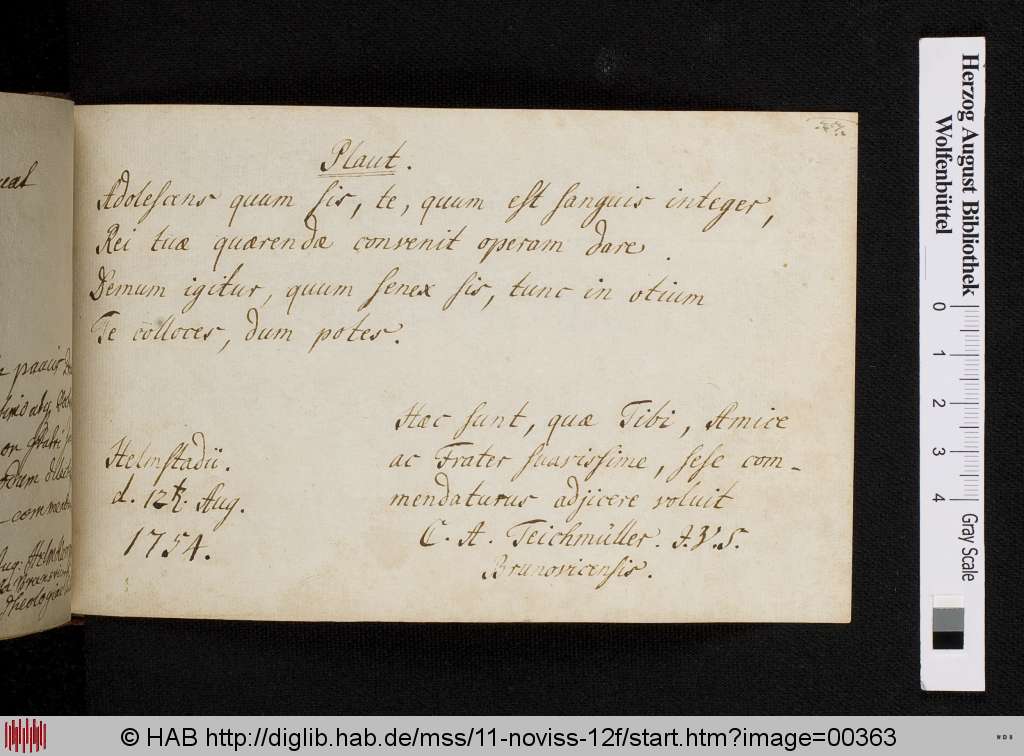 Plaut.
Adolescens quum sis, te, quum est sanguis integer,
Rei tuæ quærendæ convenit operam dare.
Demum igitur, quum senex sis, tunc in otium
Te colloces, dum potes.
Hæc sunt, quæ Tibi, Amice
ac Frater suavissime, sese com-
mendaturus adjicere voluit
C. A. Teichmüller. J.U.S.
Brunovicensis.
Helmstadii.
d. 12t. Aug.
1754.
Herzog August Bibliothek
Wolfenbüttel
0 1 2 3 4
Gray Scale
© HAB http://diglib.hab.de/mss/11-noviss-12f/start.htm?image=00363